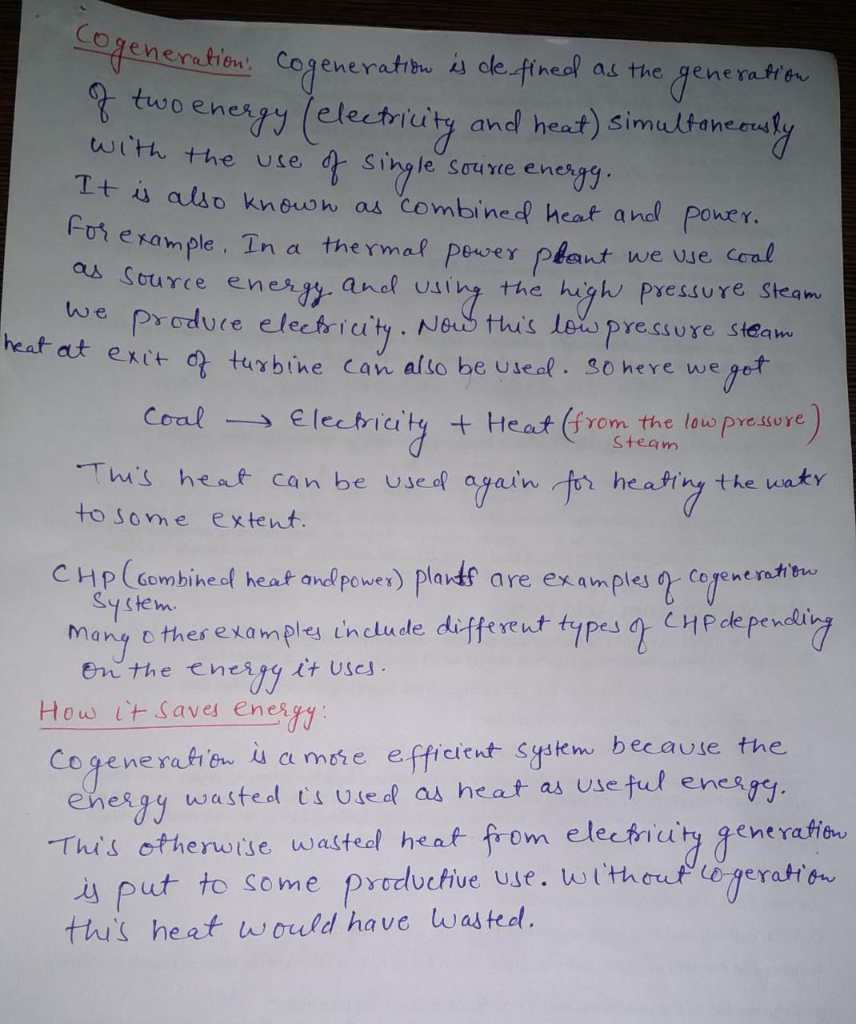 Cogeneration: Cogeneration is defined as the generation
of two energy (electricity and heat) simultaneously
with the use of single source energy.
It is also known as combined heat and power.
For example, In a thermal power plant we use coal
as source energy and using the high pressure steam
we produce electricity. Now this low pressure steam
heat at exit of turbine can also be used. So here we got
Coal → Electricity + Heat (from the low pressure)
steam
This heat can be used again for heating the water
to some extent.
CHP (combined heat and power) plants are examples of cogeneration
system.
Many other examples include different types of CHP depending
on the energy it uses.
How it saves energy:
Cogeneration is a more efficient system because the
energy wasted is used as heat as useful energy.
This otherwise wasted heat from electricity generation
is put to some productive use. Without cogeration
this heat would have wasted.